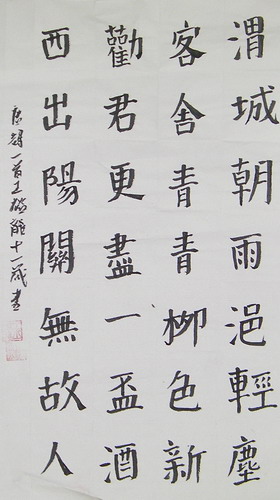 渭城朝雨浥輕塵
客舍青青柳色新
勸君更盡一盃酒
西出陽關無故人
唐詩一首王皓熊十一歲書